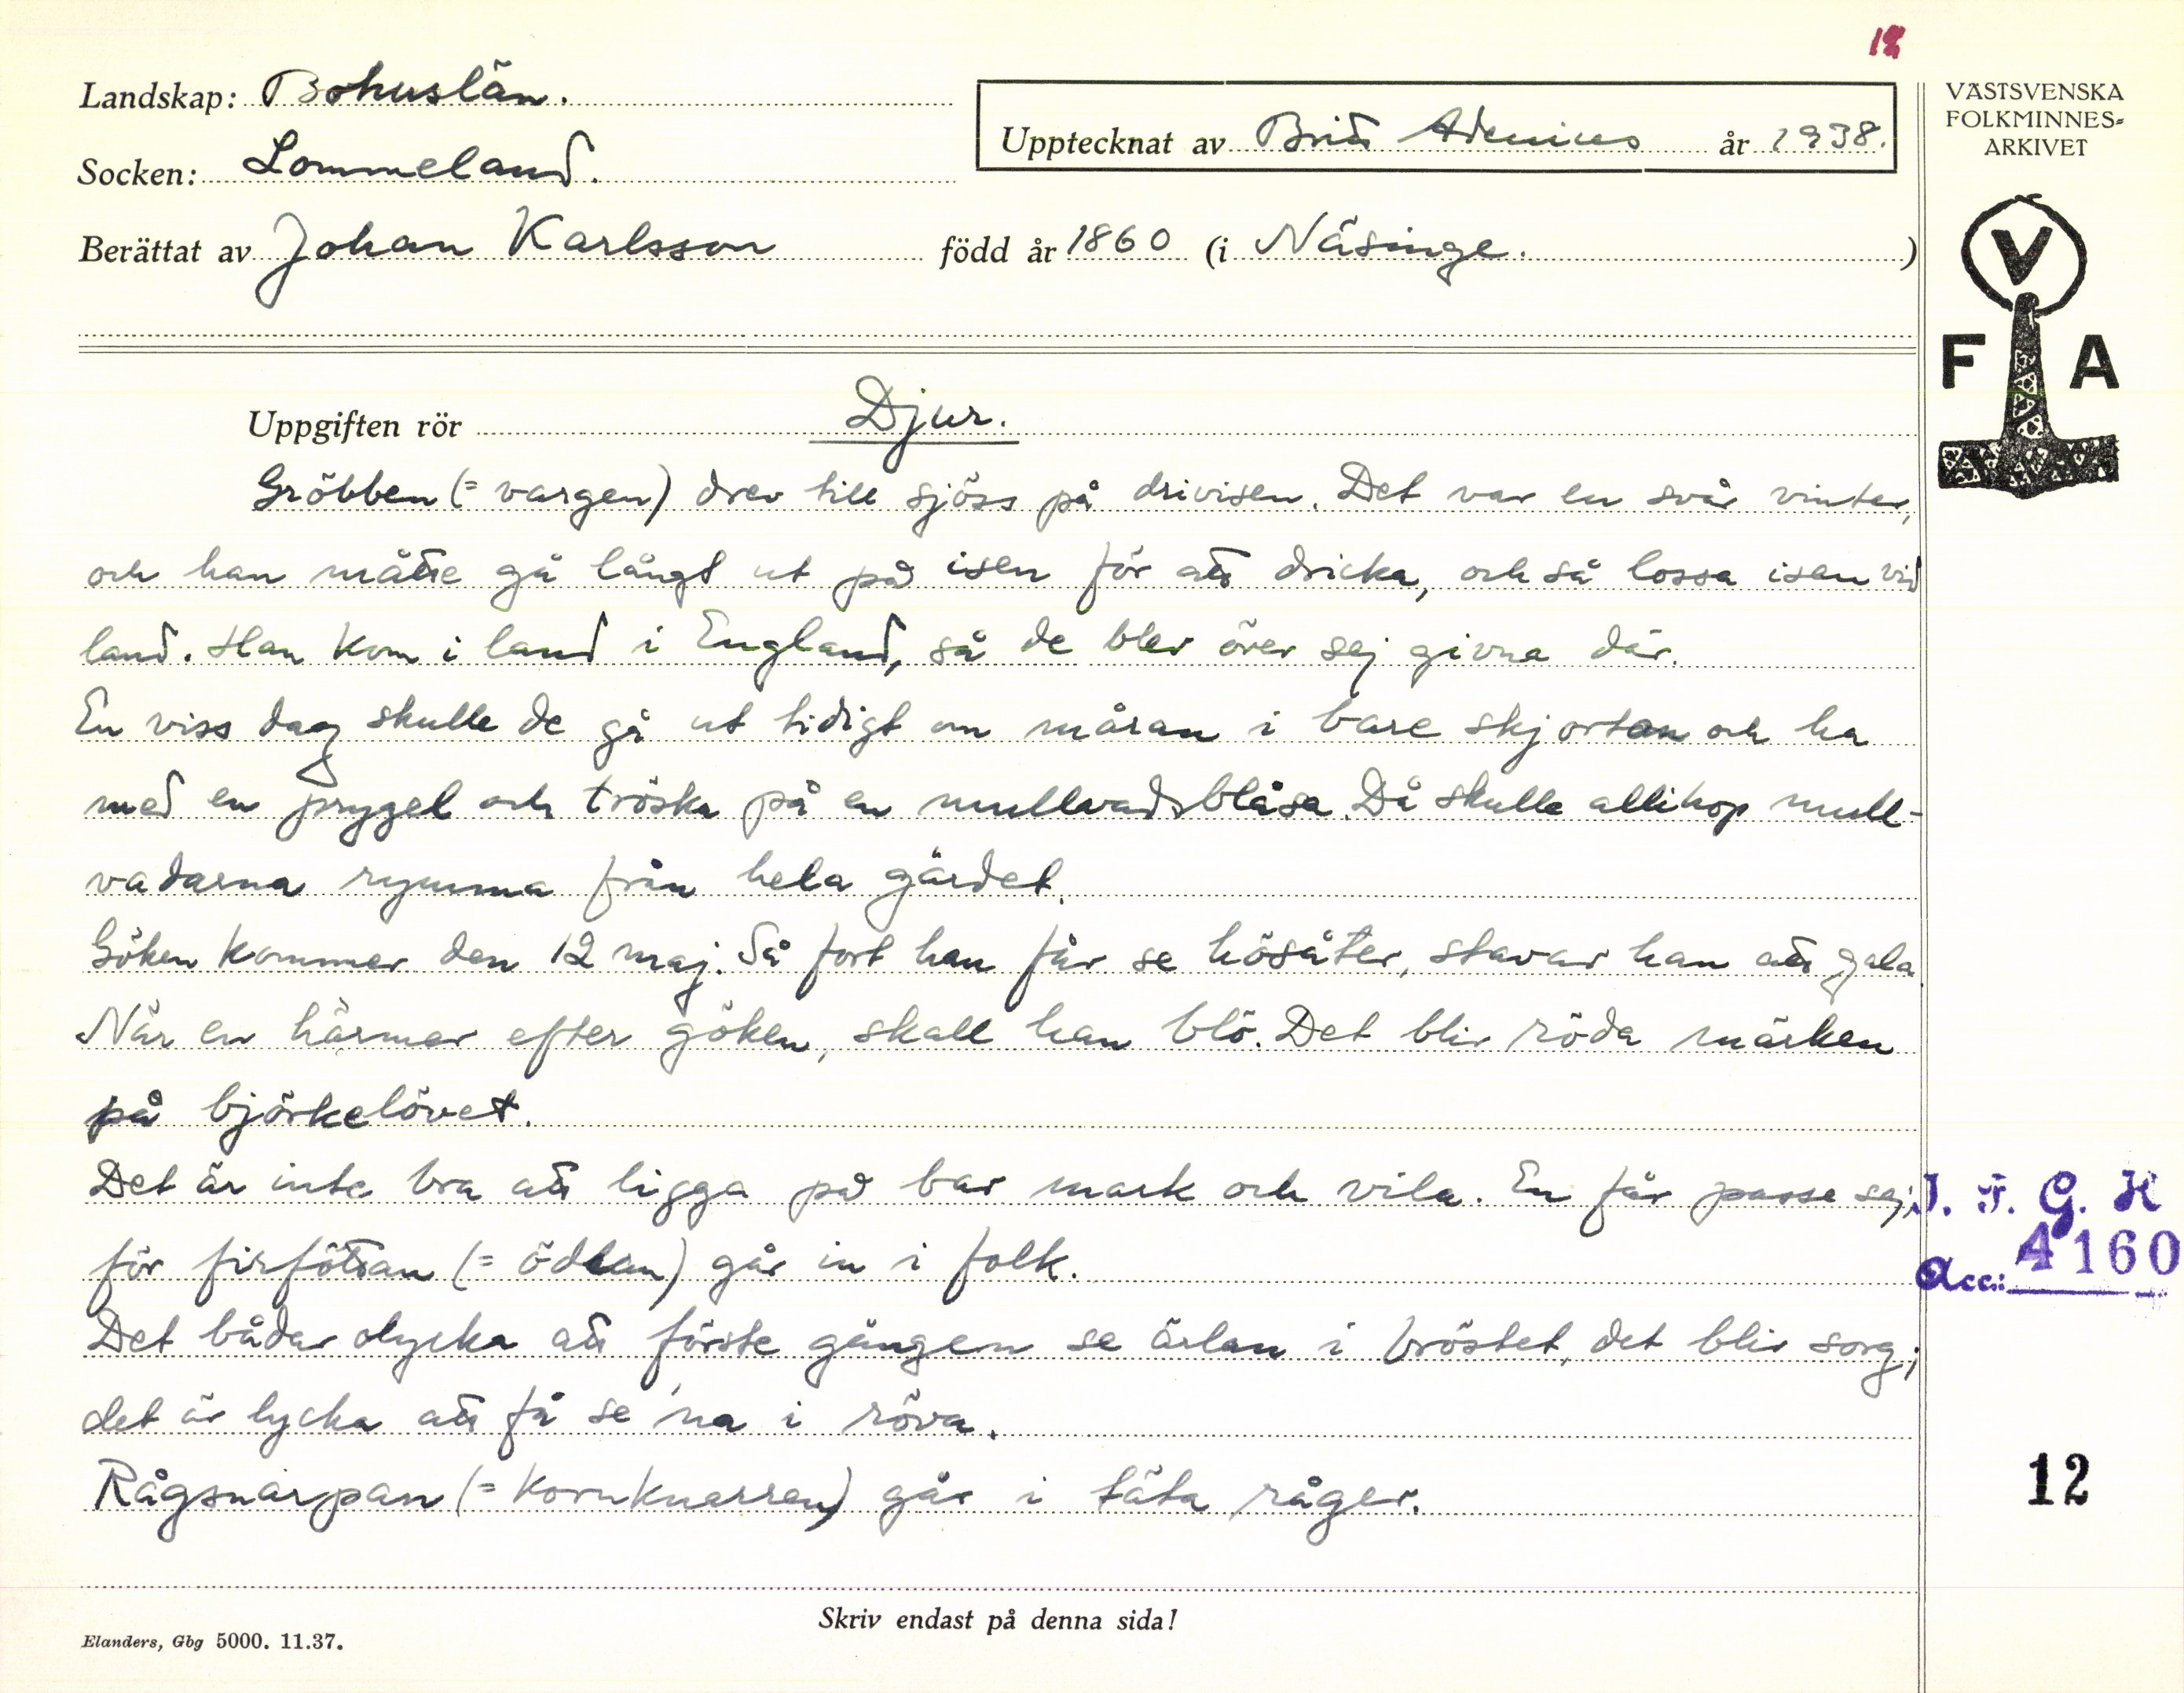 18
Landskap: Bohuslän.
Upptecknat av Britt Adenius år 1938.
Socken: Lommeland.
Berättat av Johan Karlsson född år 1860 (i Näsinge. )
VÄSTSVENSKA
FOLKMINNES-
ARKIVET
V
F A
Uppgiften rör Djur.
Gröbben (= vargen) drev till sjöss på drivisen. Det var en svår vinter,
och han måtte gå långt ut på isen för att dricka, och så lossa isen vid
land. Han kom i land i England, så de blev över sej givna där.
En viss dag skulle de gå ut tidigt om måran i bare skjortan och ha
med en prygel och tröska på en mullvadsblåsa. Då skulle allihop mull-
vadarna rymma från hela gärdet.
Göken kommer den 12 maj. Så fort han får se hösåter, stavar han att gala.
När en härmar efter göken, skall han blö. Det blir röda märken
på björkelövet.
Det är inte bra att ligga på bar mark och vila. En får passe sej,
för firföttan (= ödlan) går in i folk.
Det bådar olycka att förste gången se ärlan i bröstet, det blir sorg;
det är lycka att få se 'na i röva.
Rågsnarpan (= Kornknarren) går i täta råger.
I. F. G. H
Acc.: 4160
12
Skriv endast på denna sida!
Elanders, Gbg 5000. 11.37.